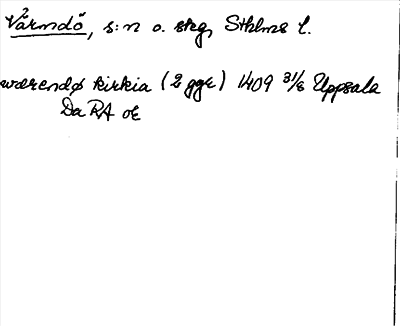 Värmdö, s:n o. skg, Sthlms l.
wærendø kirkia (2 ggr) 1409 31/8 Uppsala
Da RA oE